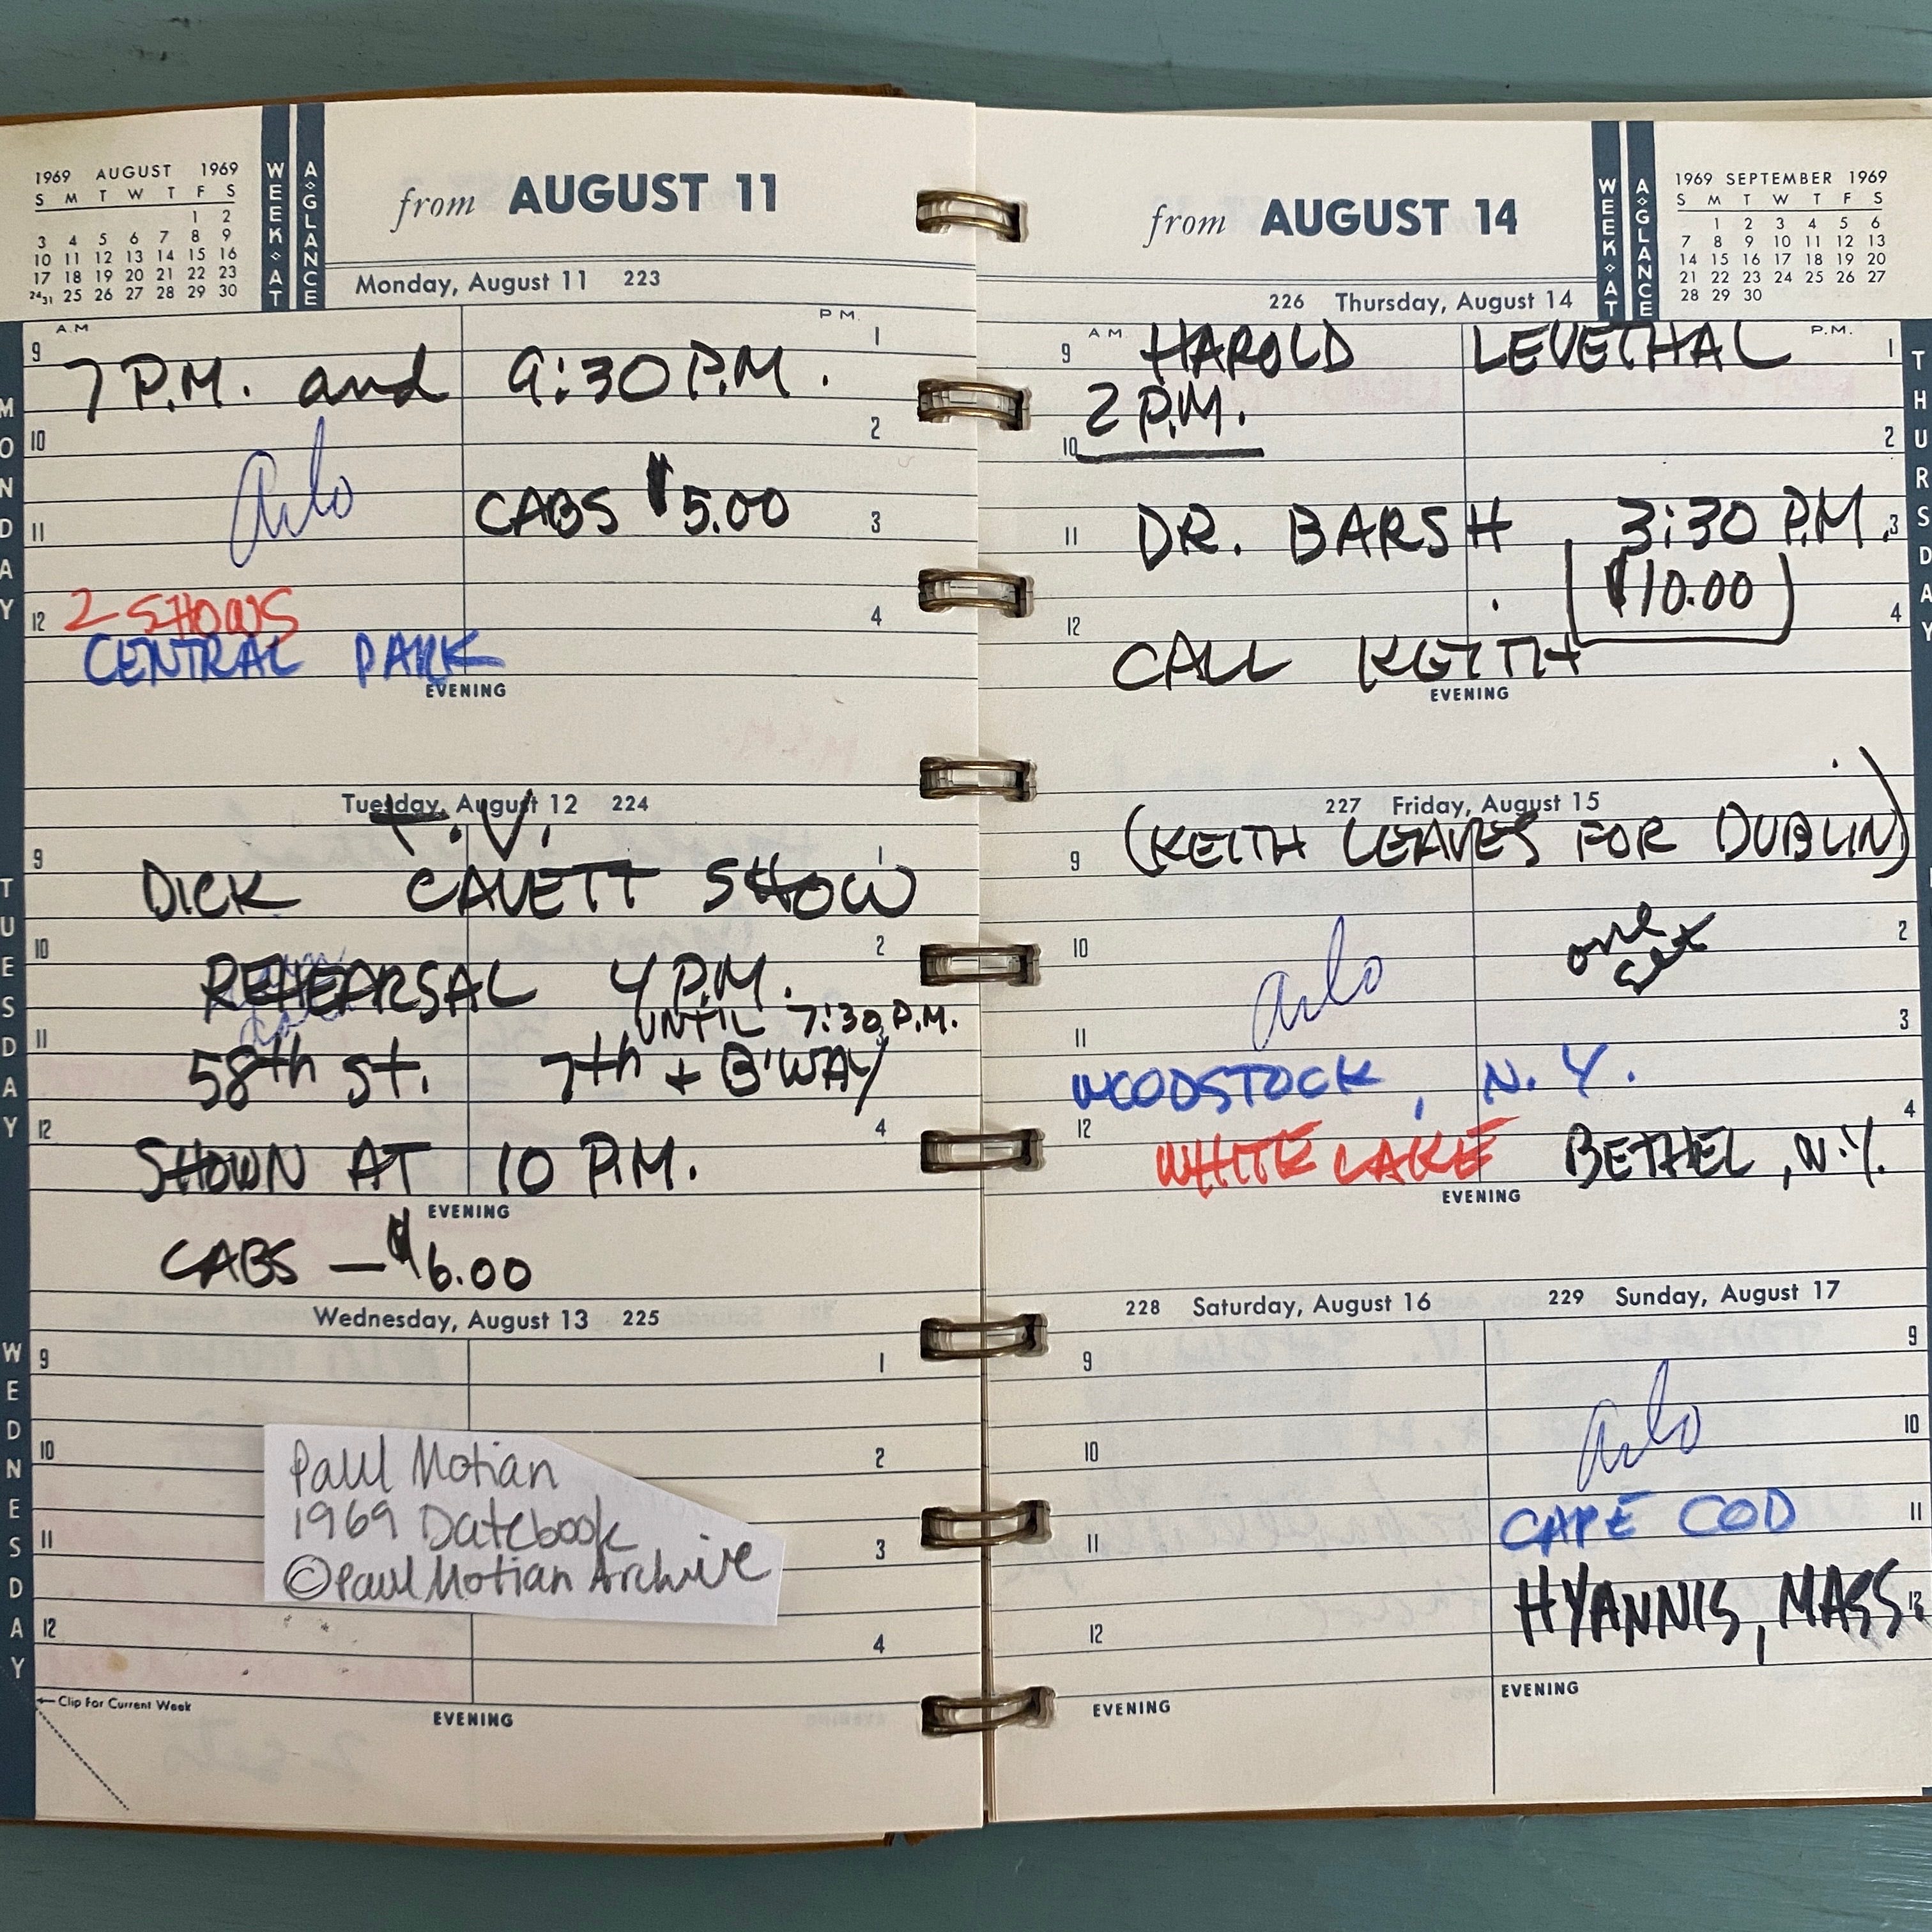 1969 AUGUST 1969
S M T W T F S
1 2
3 4 5 6 7 8 9
10 11 12 13 14 15 16
17 18 19 20 21 22 23
24/31 25 26 27 28 29 30
WEEK AT A GLANCE
from AUGUST 11
Monday, August 11 223
MONDAY
A.M P.M.
9 1
7 P.M. and 9:30 P.M.
10 2
Arlo
CABS $5.00
11 3
2 SHOWS
12 4
CENTRAL PARK
EVENING
Tuesday, August 12 224
TUESDAY
T.V.
9 1
DICK CAVETT SHOW
10 2
REHEARSAL 4 P.M.
UNTIL 7:30 P.M.
11 3
58th St. 7th + B'WAY
12 4
SHOWN AT 10 P.M.
EVENING
CABS — $6.00
Wednesday, August 13 225
WEDNESDAY
9 1
10 2
Paul Motian
1969 Datebook
©Paul Motian Archive
11 3
12 4
←Clip For Current Week
EVENING
from AUGUST 14
WEEK AT A GLANCE
1969 SEPTEMBER 1969
S M T W T F S
1 2 3 4 5 6
7 8 9 10 11 12 13
14 15 16 17 18 19 20
21 22 23 24 25 26 27
28 29 30
226 Thursday, August 14
THURSDAY
A.M. P.M.
9 1
HAROLD LEVETHAL
2 P.M.
10 2
DR. BARSH 3:30 P.M.
11 3
$10.00
12 4
CALL KEITH
EVENING
227 Friday, August 15
(KEITH LEAVES FOR DUBLIN)
9
10 2
one
set
arlo
11 3
WOODSTOCK, N.Y.
12 4
WHITE LAKE BETHEL, N.Y.
EVENING
228 Saturday, August 16
9
10
11
12
EVENING
229 Sunday, August 17
9
arlo
10
CAPE COD
11
HYANNIS, MASS
12
EVENING